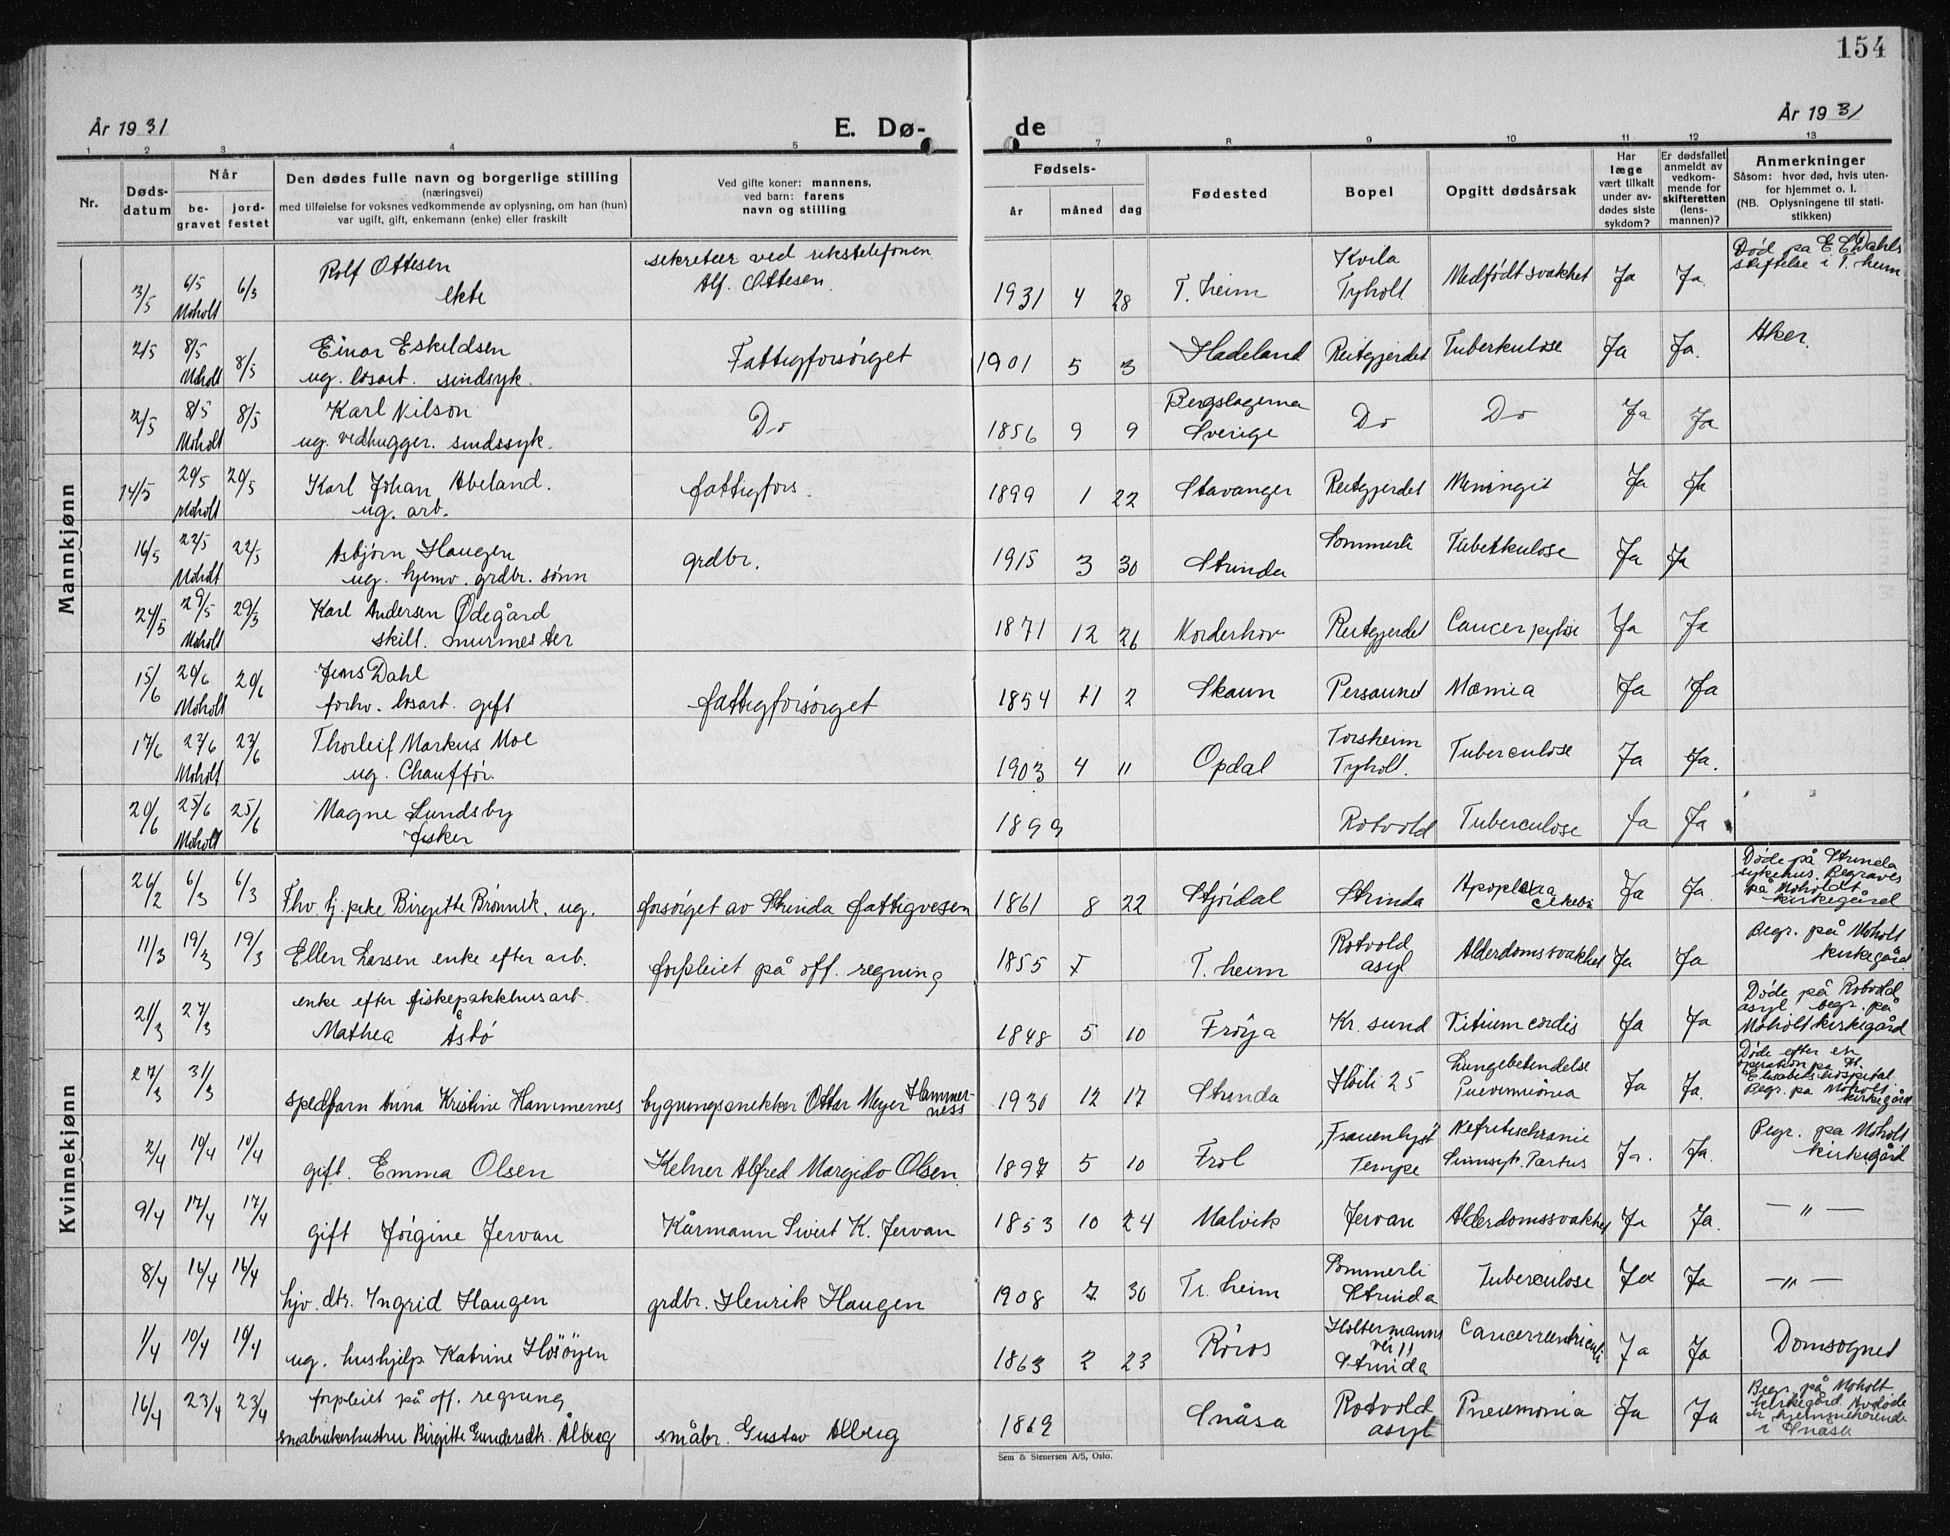 154
År 1931
E. Dø-
de
År 1931
1 2 3 4 5 7 8 9 10 11 12 13
Nr.
Døds-
datum
Når
be-
gravet
jord-
festet
Den dødes fulle navn og borgerlige stilling
(næringsvei)
med tilføielse for voksnes vedkommende av oplysning, om han (hun)
var ugift, gift, enkemann (enke) eller fraskilt
Ved gifte koner: mannens,
ved barn: farens
navn og stilling
Fødsels-
år
måned
dag
Fødested
Bopel
Opgitt dødsårsak
Har
læge
vært tilkalt
under av-
dødes siste
sykdom?
Er dødsfallet
anmeldt av
vedkom-
mende for
skifteretten
(lens-
mannen)?
Anmerkninger
Såsom: hvor død, hvis uten-
for hjemmet o. l.
(NB. Oplysningene til stati-
stikken)
Mannkjønn
3/5 6/5 Moholt 6/5
Rolf Ottesen
ekte
sekretær ved rikstelefonen
Alf. Ottesen.
1931 4 28 T. heim
Kvila
Tyholt
Medfødt svakhet Ja Ja.
Død på E C Dahls
stiftelse i T. heim
2/5 8/5 Moholt 8/5
Einar Eskildsen
ug. løsarb. sindsyk.
Fattigforsørget
1901 5 3 Hadeland Reitgjerdet Tuberkulose Ja Ja. Aker.
2/5 8/5 Moholt 8/5
Karl Nilson
ug. vedhugger. sindssyk.
Do
1856 9 9
Bergslagerna
Sverige
Do Do Ja Ja
14/5 20/5 Moholt 20/5
Karl Johan Abeland.
ug. arb.
fattigfors.
1899 1 22 Stavanger Reitgjerdet Meningit Ja Ja
16/5 22/5 Moholt 22/5
Asbjørn Haugen
ug. hjemv. grdbr. sønn
grdbr.
1915 3 30 Strinda Sommerli Tuberkulose Ja Ja
24/5 29/5 Moholt 29/5
Karl Andersen Ødegård
skilt. murmester
1871 12 26 Norderhov Reitgjerdet Cancer Ja Ja
15/6 20/6 Moholt 20/6
Jens Dahl
forhv. løsarb. gift
fattigforsørget
1854 11 2 Skaun Persaunet Ja Ja
17/6 23/6 Moholt 23/6
Thorleif Markus Moe
ug. Chauffør.
1903 4 11 Opdal
Torsheim
Tyholt.
Tuberculose Ja Ja.
20/6 25/6 Moholt 25/6
Magne Lundsby
fisker
1899 Rotvold Tuberculose Ja Ja
Kvinnekjønn
26/2 6/3 6/3
Fhv. tj. pike Birgitte Brønnik. ug. forsørget av Strinda fattigvesen
1861 8 22 Stjørdal Strinda Apoplexia Ja Ja.
Døde på Strinda
sykehus. Begraves
på Moholdt
kirkegård
11/3 19/3 19/3
Ellen Larsen enke efter arb. forpleiet på off. regning
1855 T. heim
Rotvold
asyl
Alderdomssvakhet Ja Ja
Begr. på Moholt
kirkegård
21/3 27/3
enke efter fiskepakkhusarb.
Mathea Asbø
1848 5 10 Frøya Kr. sund Vitium cordis Ja Ja
Døde på Rotvold
asyl begr. på
Moholt kirkegård
27/3 31/3
spedbarn Anna Kristine Hammernes bygningssnekker Ottar Meyer Hammer-
ness
1930 12 17 Strinda Høili 25
Lungebetendelse
Pnevmonia
Ja Ja.
Døde efter en
operation på St.
Elisabeths hospital.
Begr. på Moholt
kirkegård
2/4 10/4 10/4
gift. Emma Olsen Kelner Alfred Margido Olsen.
1897 5 10 Frol
Frauenlyst
Tempe
Ja. Ja.
Begr. på Moholt
kirkegård
9/4 17/4 17/4
gift Jørgine Jervan Kårmann Sivert K. Jervan
1853 10 24 Malvik Jervan Alderdomssvakhet Ja Ja. — " —
8/4 16/4 16/4
hjv. dtr. Ingrid Haugen grdbr. Henrik Haugen
1908 7 30 Tr. heim
Sommerli
Strinda
Tuberculose Ja Ja — " —
1/4 10/4 10/4
ug. hushjelp Katrine Høsøyen
1863 2 23 Røros
Holtermanns
vei 11
Strinda
Cancer ventriculi Ja Ja Domsognet
16/4 23/4 23/4
forpleiet på off. regning
småbrukerhustru Birgitte Gundersdtr. Ålberg småbr. Gustav Alberg
1869 Snåsa
Rotvold
asyl
Pneumonia Ja Ja
Begr. på Moholt
kirkegård Avdøde
er hjemmehørende
i Snåsa
Sem & Stenersen A/S, Oslo.